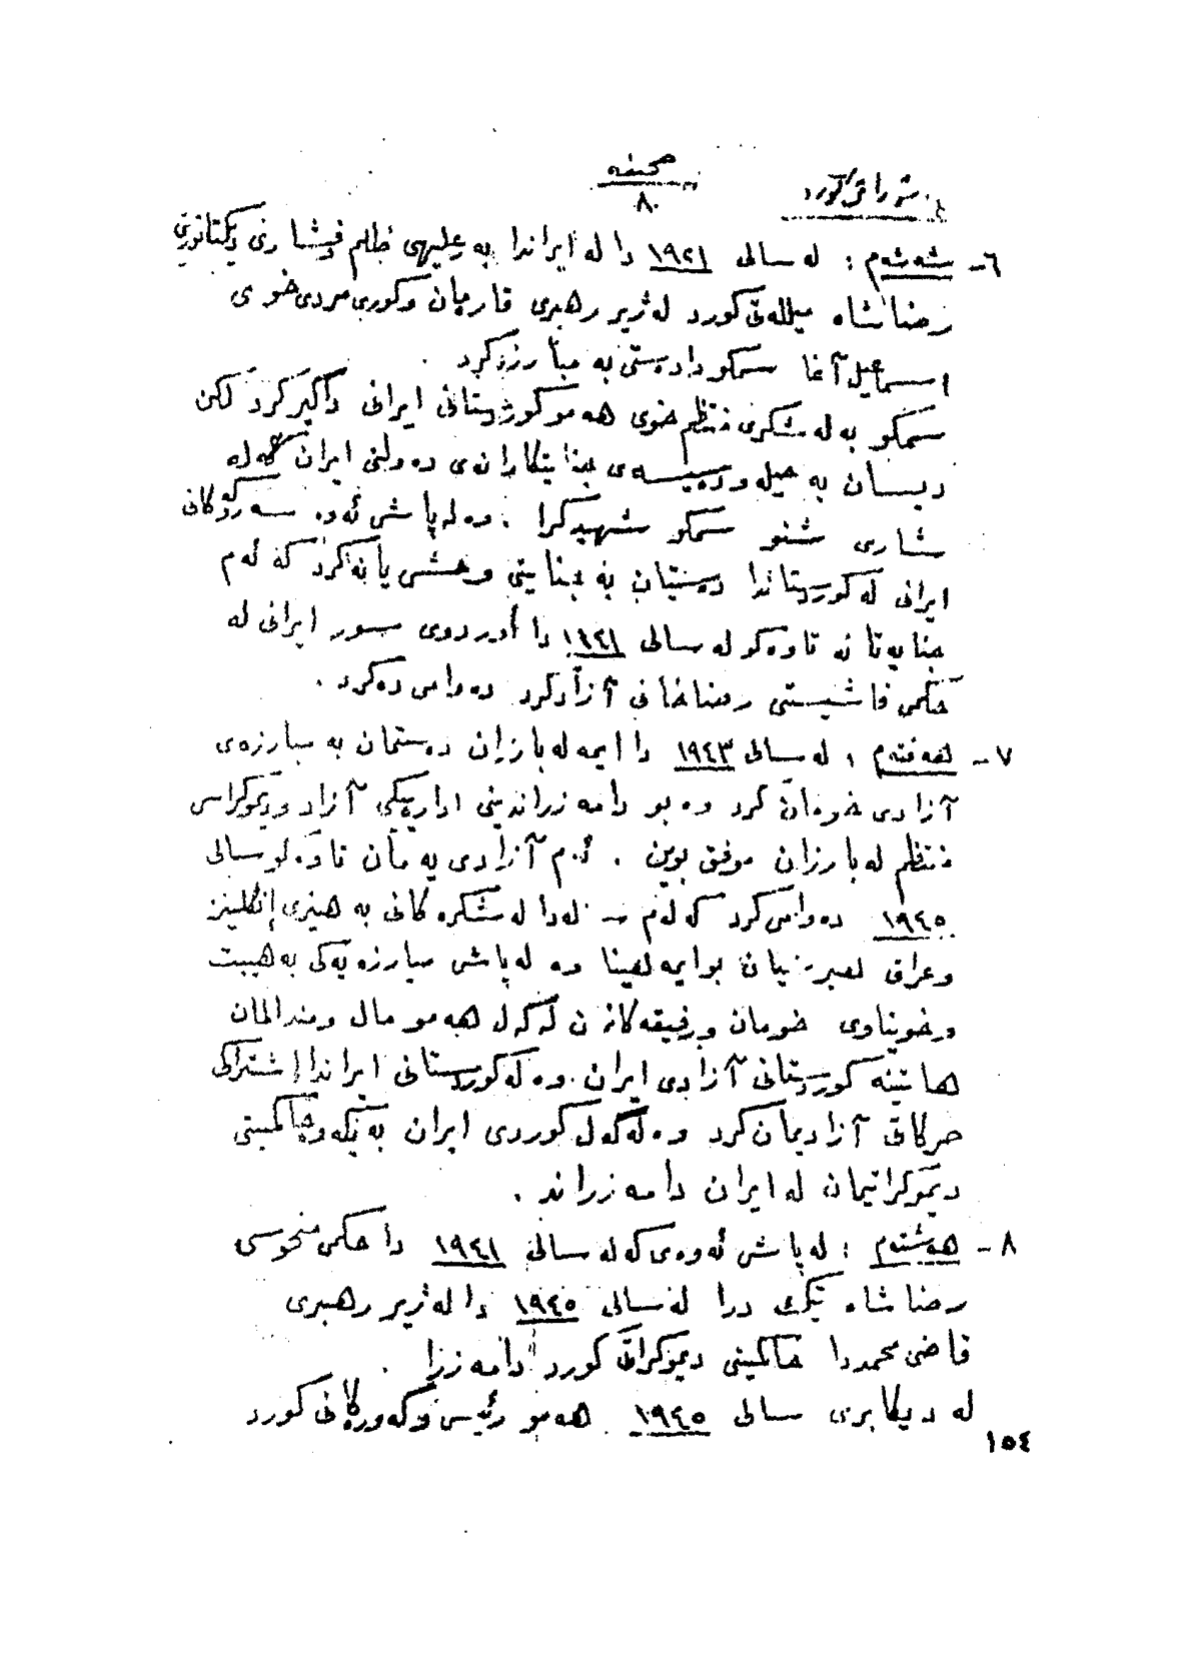 صحیفه
٨٠
٦- شەشەم : لە سالی ١٩٢١ دا لە ایراندا بە رعلیهی ظلم و فشاری دیکتاتوری
رضاشاە میللەتی کورد لەژیر رهبری قارەمان و کوری مردی خوی
اسماعیل آغا سمکو دا دەستی بە مبارزە کرد .
سمکو بە لەشکری منتظم خوی هەمو کوردستانی ایرانی داگیر کرد لکن
دیسان بە حیلە و دەسیسەی جنایتکارانەی دەولتی ایران کە لە
شاری شنو سمکو شهید کرا . وە لەپاش ئەوە سەرۆکانی
ایرانی لە کوردستاندا دەستیان بە جنایتی وحشییانە کرد کە ئەم
جنایەتانە تاوەکو لە سالی ١٩٤١ دا أوردوی سور ایرانی لە
حکمی فاشیستی رضاخانی آزاد کرد دەوامی دەکرد .
٧- هەفتەم : لە سالی ١٩٤٣ دا ایمە لە بارزان دەستمان بە مبارزەی
آزادی خومان کرد وە بو دامەزراندینی ادارەیکی آزاد و دیموکراسی
منتظم لە بارزان موفق بوین . ئەم آزادی یەمان تاوەکو سالی
١٩٤٥ دەوامی کرد کە لەم دا لەشکرەکانی بە هیزی إنگلیز
وعراق هیرشیان بو ایمە هینا وە لەپاش مبارزەیەکی بە هیبت
و خویناوی خومان و رفیقەکانمان لەگەل هەمو مال و مندالمان
هاتینە کوردستانی آزادی ایران . وە لە کوردستانی ایراندا إشتراکی
حرکاتی آزادیمان کرد وە لەگەل کوردی ایران بە یکەوە حاکمیتی
دیموکراتیمان لە ایران دامەزراند .
٨- هەشتەم : لەپاش ئەوەی کە لە سالی ١٩٤١ دا حکمی منحوسی
رضاشاە تیک درا لە سالی ١٩٤٥ دا لەژیر رهبری
قاضی محمددا حاکمیتی دیموکراتی کورد دامەزرا .
لە دیکابری سالی ١٩٤٥ هەمو رئیس و گەورەکانی کورد
١٥٤